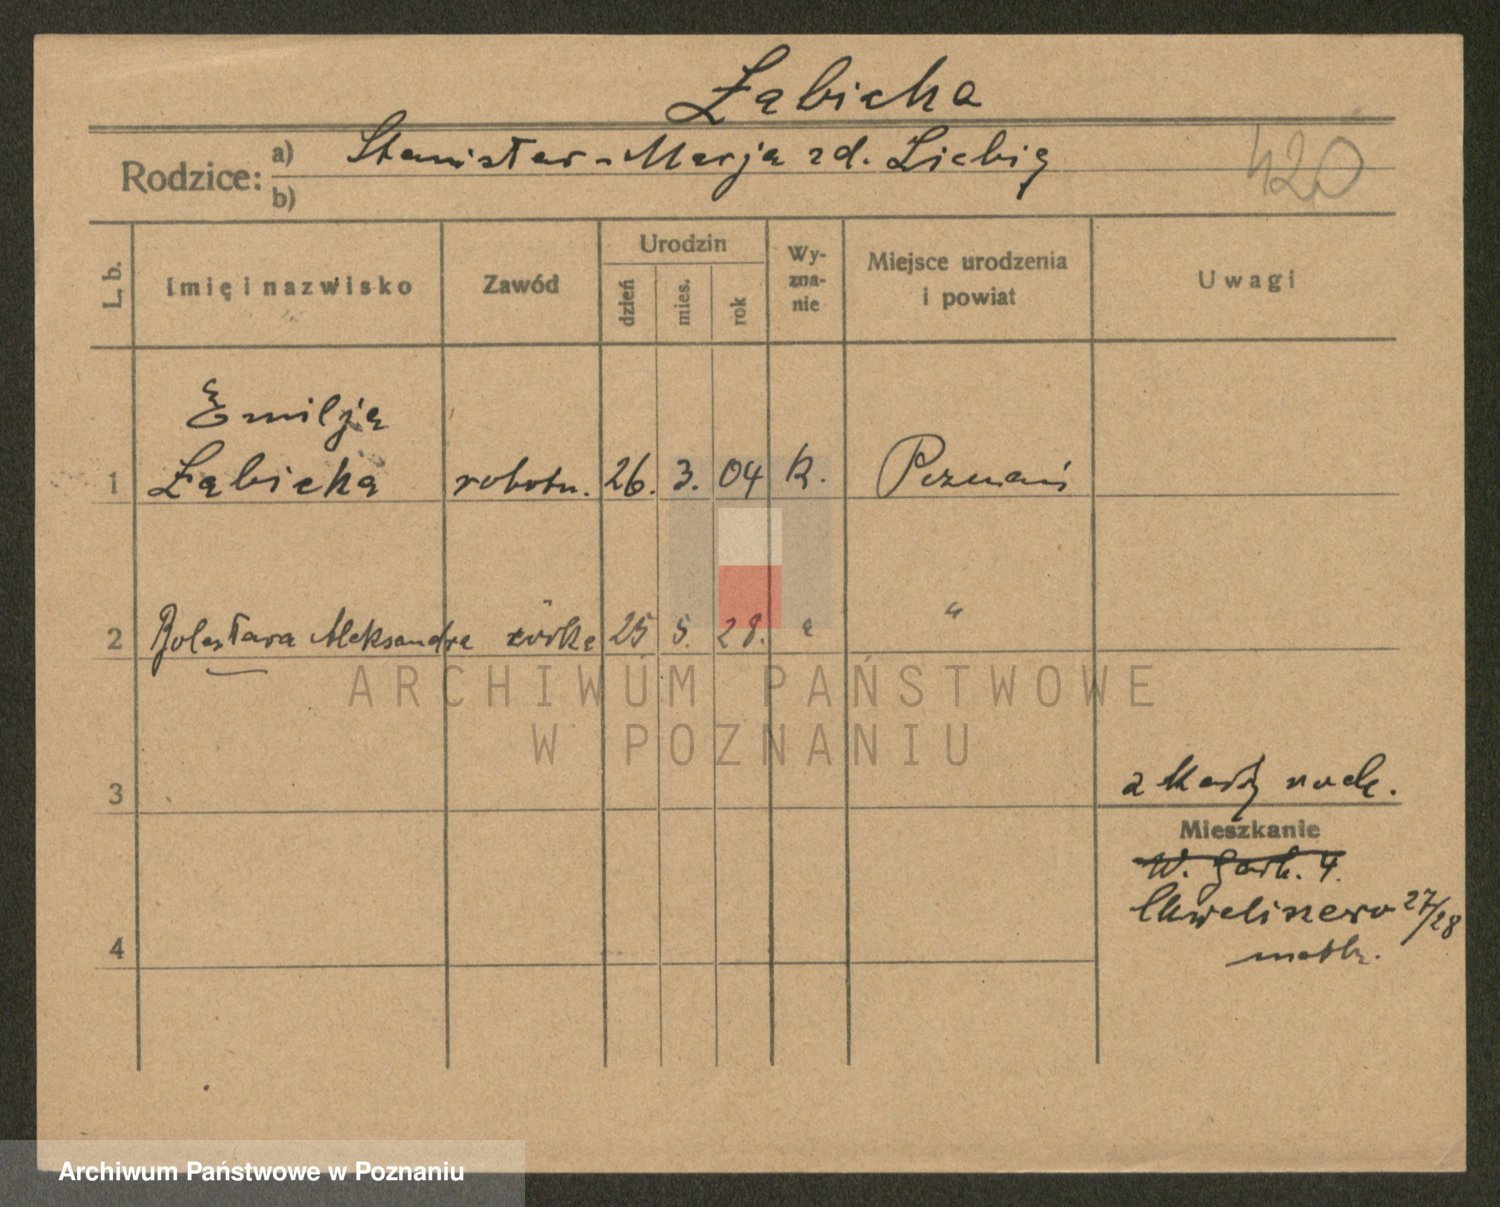 Łabicka
Rodzice: a) Stanisław - Marja zd. Liebig
b)
420
L. b.
Imię i nazwisko
Zawód
Urodzin
dzień
mies.
rok
Wy-
zna-
nie
Miejsce urodzenia
i powiat
Uwagi
Emilja
1 Łabicka robotn. 26. 3. 04 k. Poznań
2 Bolesława Aleksandra córka 25 5. 28. " "
ARCHIWUM PAŃSTWOWE
W POZNANIU
3
z karty rodz.
Mieszkanie
W. Garb. 4.
Chwaliszewo 27/28
4
Archiwum Państwowe w Poznaniu